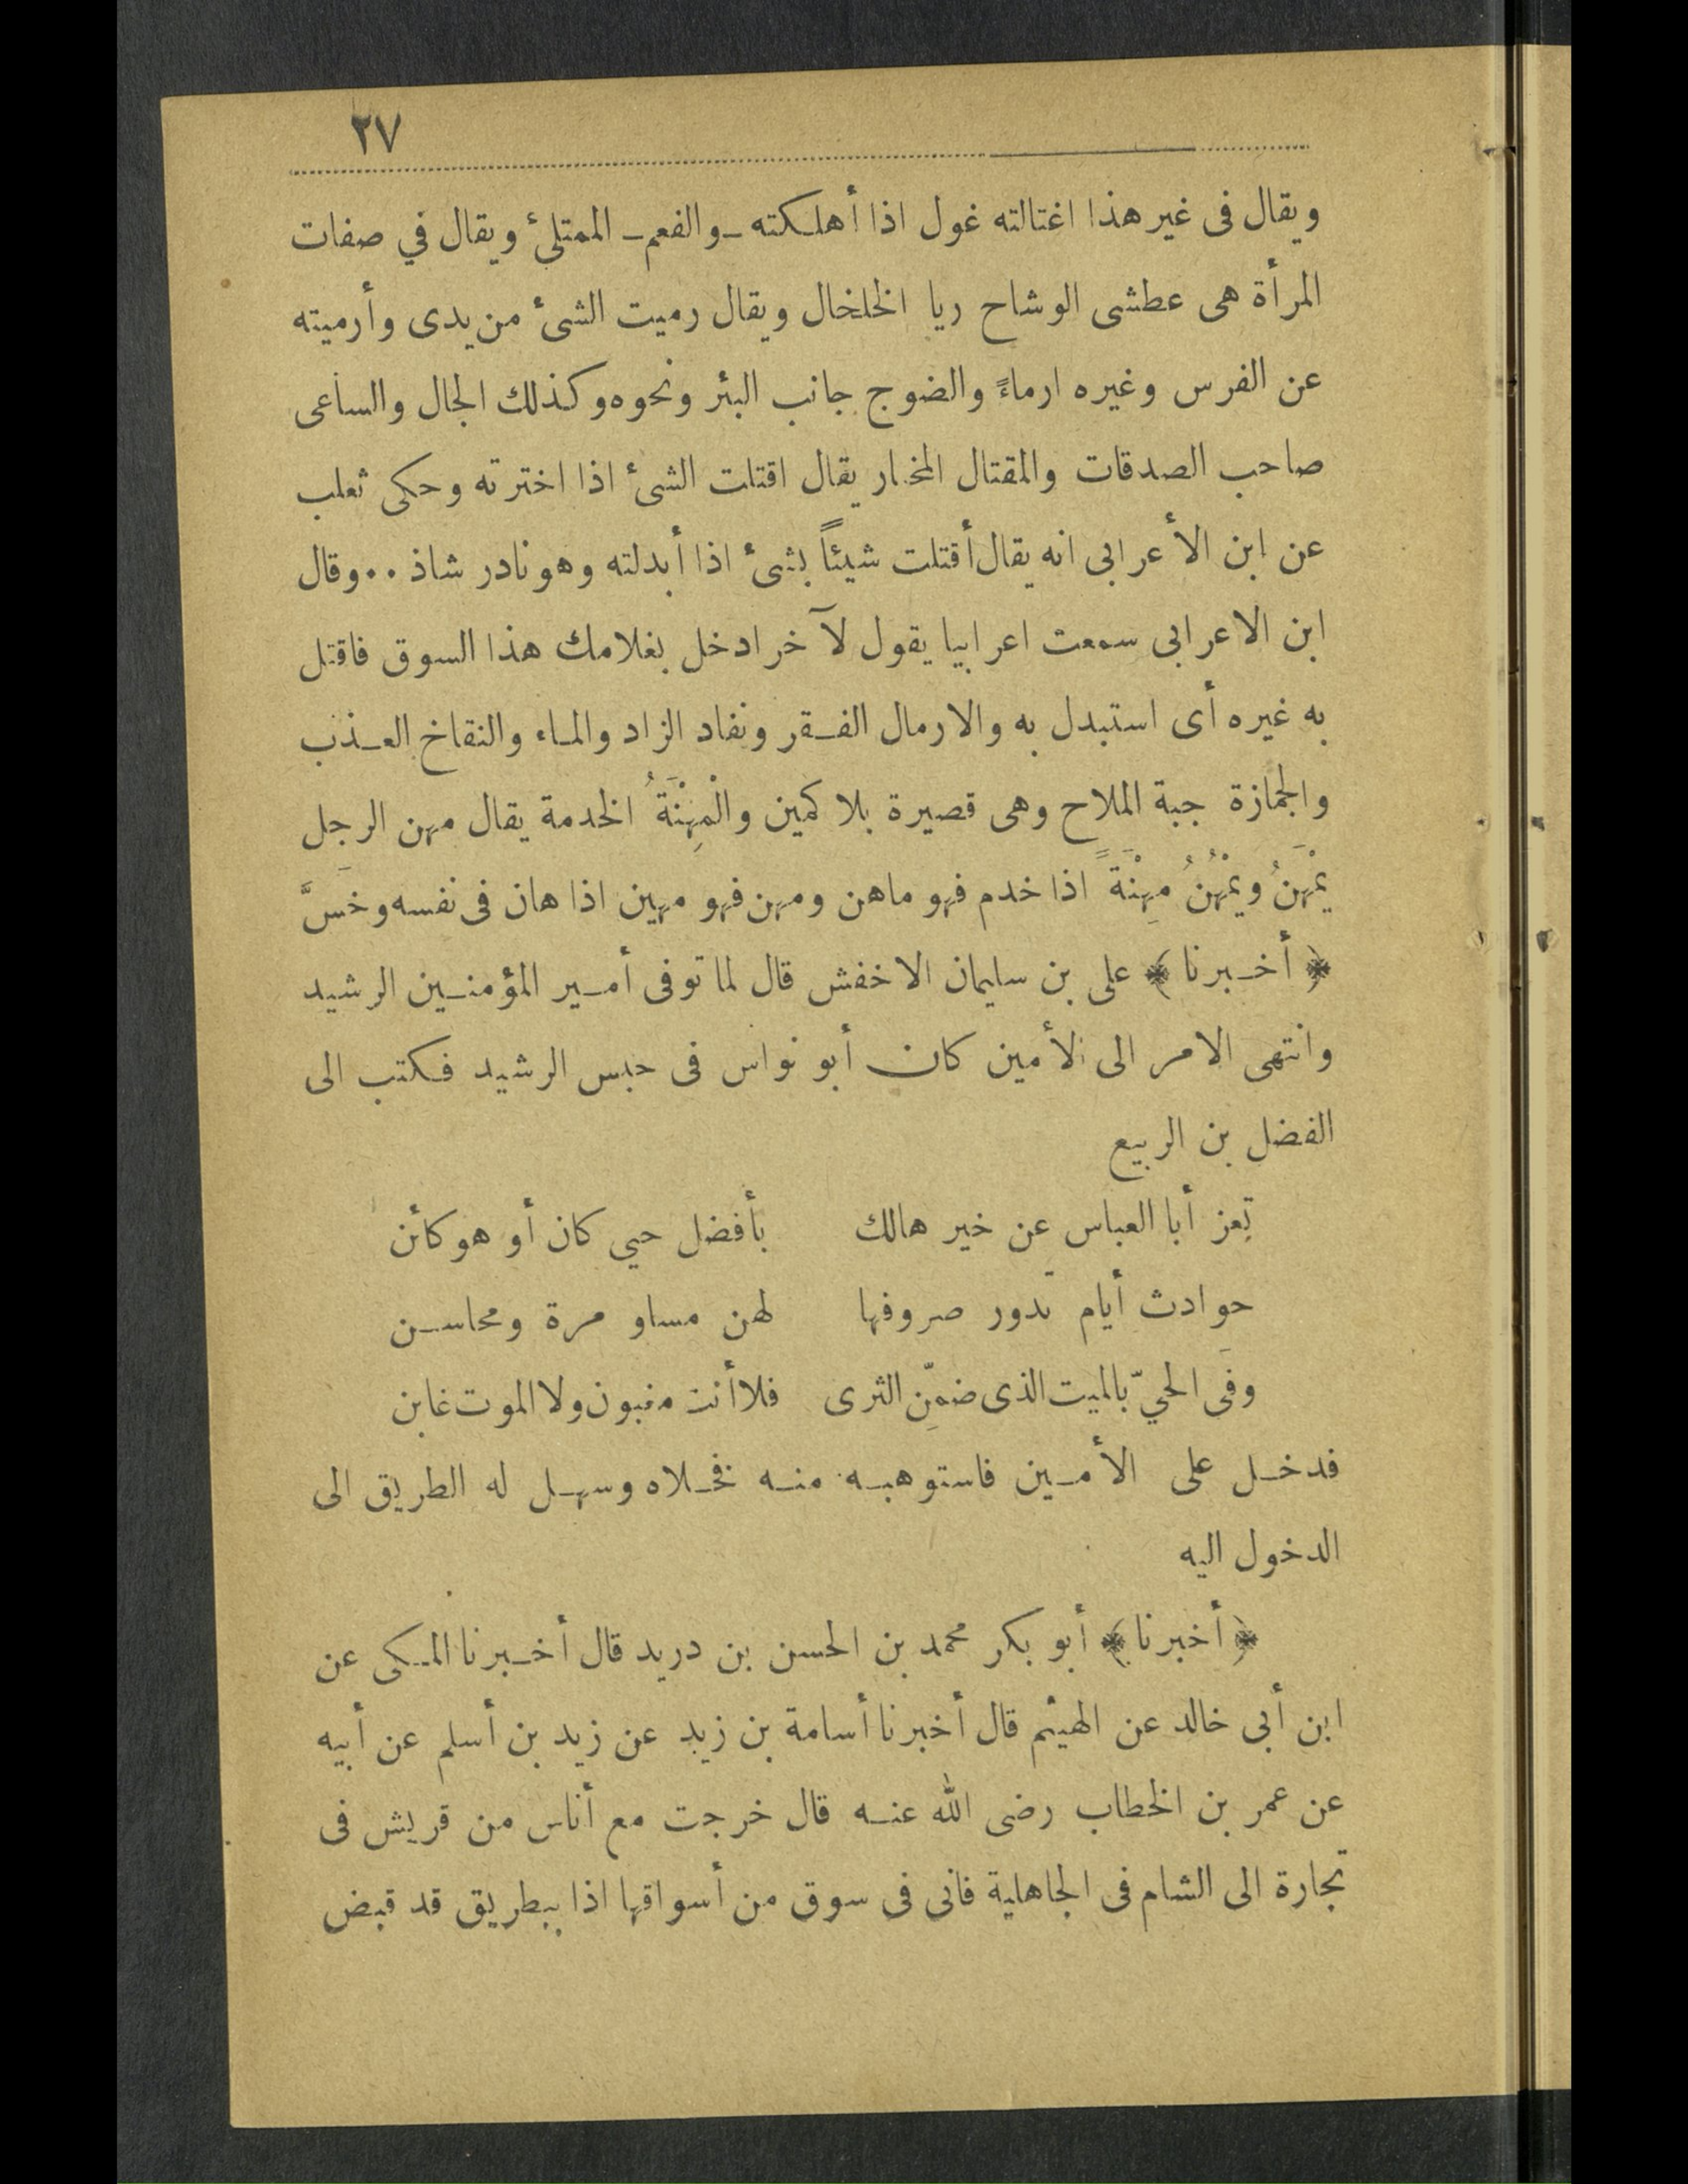 ٢٧
ويقال فى غير هذا اغتالته غول اذا أهلكته ـ والفعم ـ الممتلئ ويقال في صفات
المرأة هى عطشى الوشاح ريا الخلخال ويقال رميت الشئ من يدى وأرميته
عن الفرس وغيره ارماءً والضوج جانب البئر ونحوه وكذلك الجال والساعى
صاحب الصدقات والمقتال المختار يقال اقتلت الشئ اذا اخترته وحكى ثعلب
عن ابن الأعرابى انه يقال أقتلت شيئاً بشئ اذا أبدلته وهو نادر شاذ .. وقال
ابن الاعرابى سمعت اعرابيا يقول لآخر ادخل بغلامك هذا السوق فاقتل
به غيره أى استبدل به والارمال الفقر ونفاد الزاد والماء والنقاخ العذب
والجمازة جبة الملاح وهى قصيرة بلا كمين والْمِهْنَةُ الخدمة يقال مهن الرجل
يَمْهَنُ ويمْهُنُ مِهْنَةً اذا خدم فهو ماهن ومهن فهو مهين اذا هان فى نفسه وخسَّ
﴿ أخبرنا ﴾ على بن سليمان الاخفش قال لما توفى أمير المؤمنين الرشيد
وانتهى الامر الى الأمين كان أبو نواس فى حبس الرشيد فكتب الى
الفضل بن الربيع
تعز أبا العباس عن خير هالك بأفضل حي كان أو هو كائن
حوادث أيام تدور صروفها لهن مساو مرة ومحاسن
وفى الحيّ بالميت الذى ضمّن الثرى فلا أنت مغبون ولا الموت غابن
فدخل على الأمين فاستوهبه منه فخلاه وسهل له الطريق الى
الدخول اليه
﴿ أخبرنا ﴾ أبو بكر محمد بن الحسن بن دريد قال أخبرنا المكى عن
ابن أبى خالد عن الهيثم قال أخبرنا أسامة بن زيد عن زيد بن أسلم عن أبيه
عن عمر بن الخطاب رضى الله عنه قال خرجت مع أناس من قريش فى
تجارة الى الشام فى الجاهلية فانى فى سوق من أسواقها اذا ببطريق قد قبض